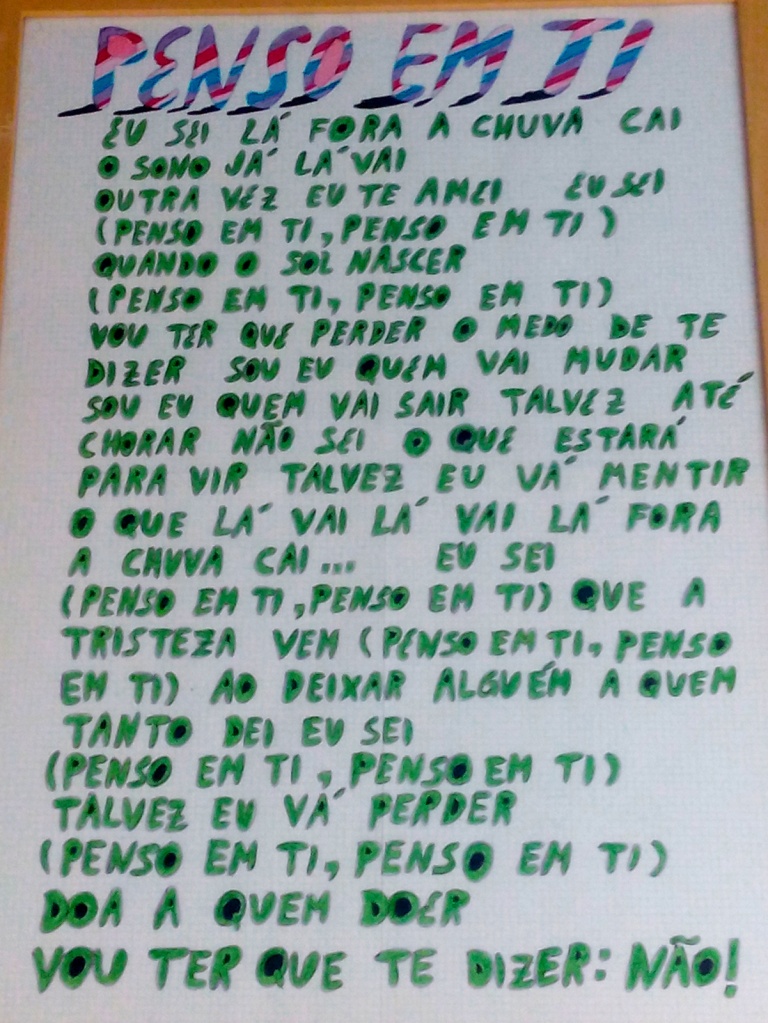 PENSO EM TI
EU SEI LÁ FORA A CHUVA CAI
O SONO JÁ LÁ VAI
OUTRA VEZ EU TE AMEI EU SEI
(PENSO EM TI, PENSO EM TI)
QUANDO O SOL NASCER
(PENSO EM TI, PENSO EM TI)
VOU TER QUE PERDER O MEDO DE TE
DIZER SOU EU QUEM VAI MUDAR
SOU EU QUEM VAI SAIR TALVEZ ATÉ
CHORAR NÃO SEI O QUE ESTARÁ
PARA VIR TALVEZ EU VÁ MENTIR
O QUE LÁ VAI LÁ VAI LÁ FORA
A CHUVA CAI... EU SEI
(PENSO EM TI, PENSO EM TI) QUE A
TRISTEZA VEM (PENSO EM TI, PENSO
EM TI) AO DEIXAR ALGUÉM A QUEM
TANTO DEI EU SEI
(PENSO EM TI, PENSO EM TI)
TALVEZ EU VÁ PERDER
(PENSO EM TI, PENSO EM TI)
DOA A QUEM DOER
VOU TER QUE TE DIZER: NÃO!